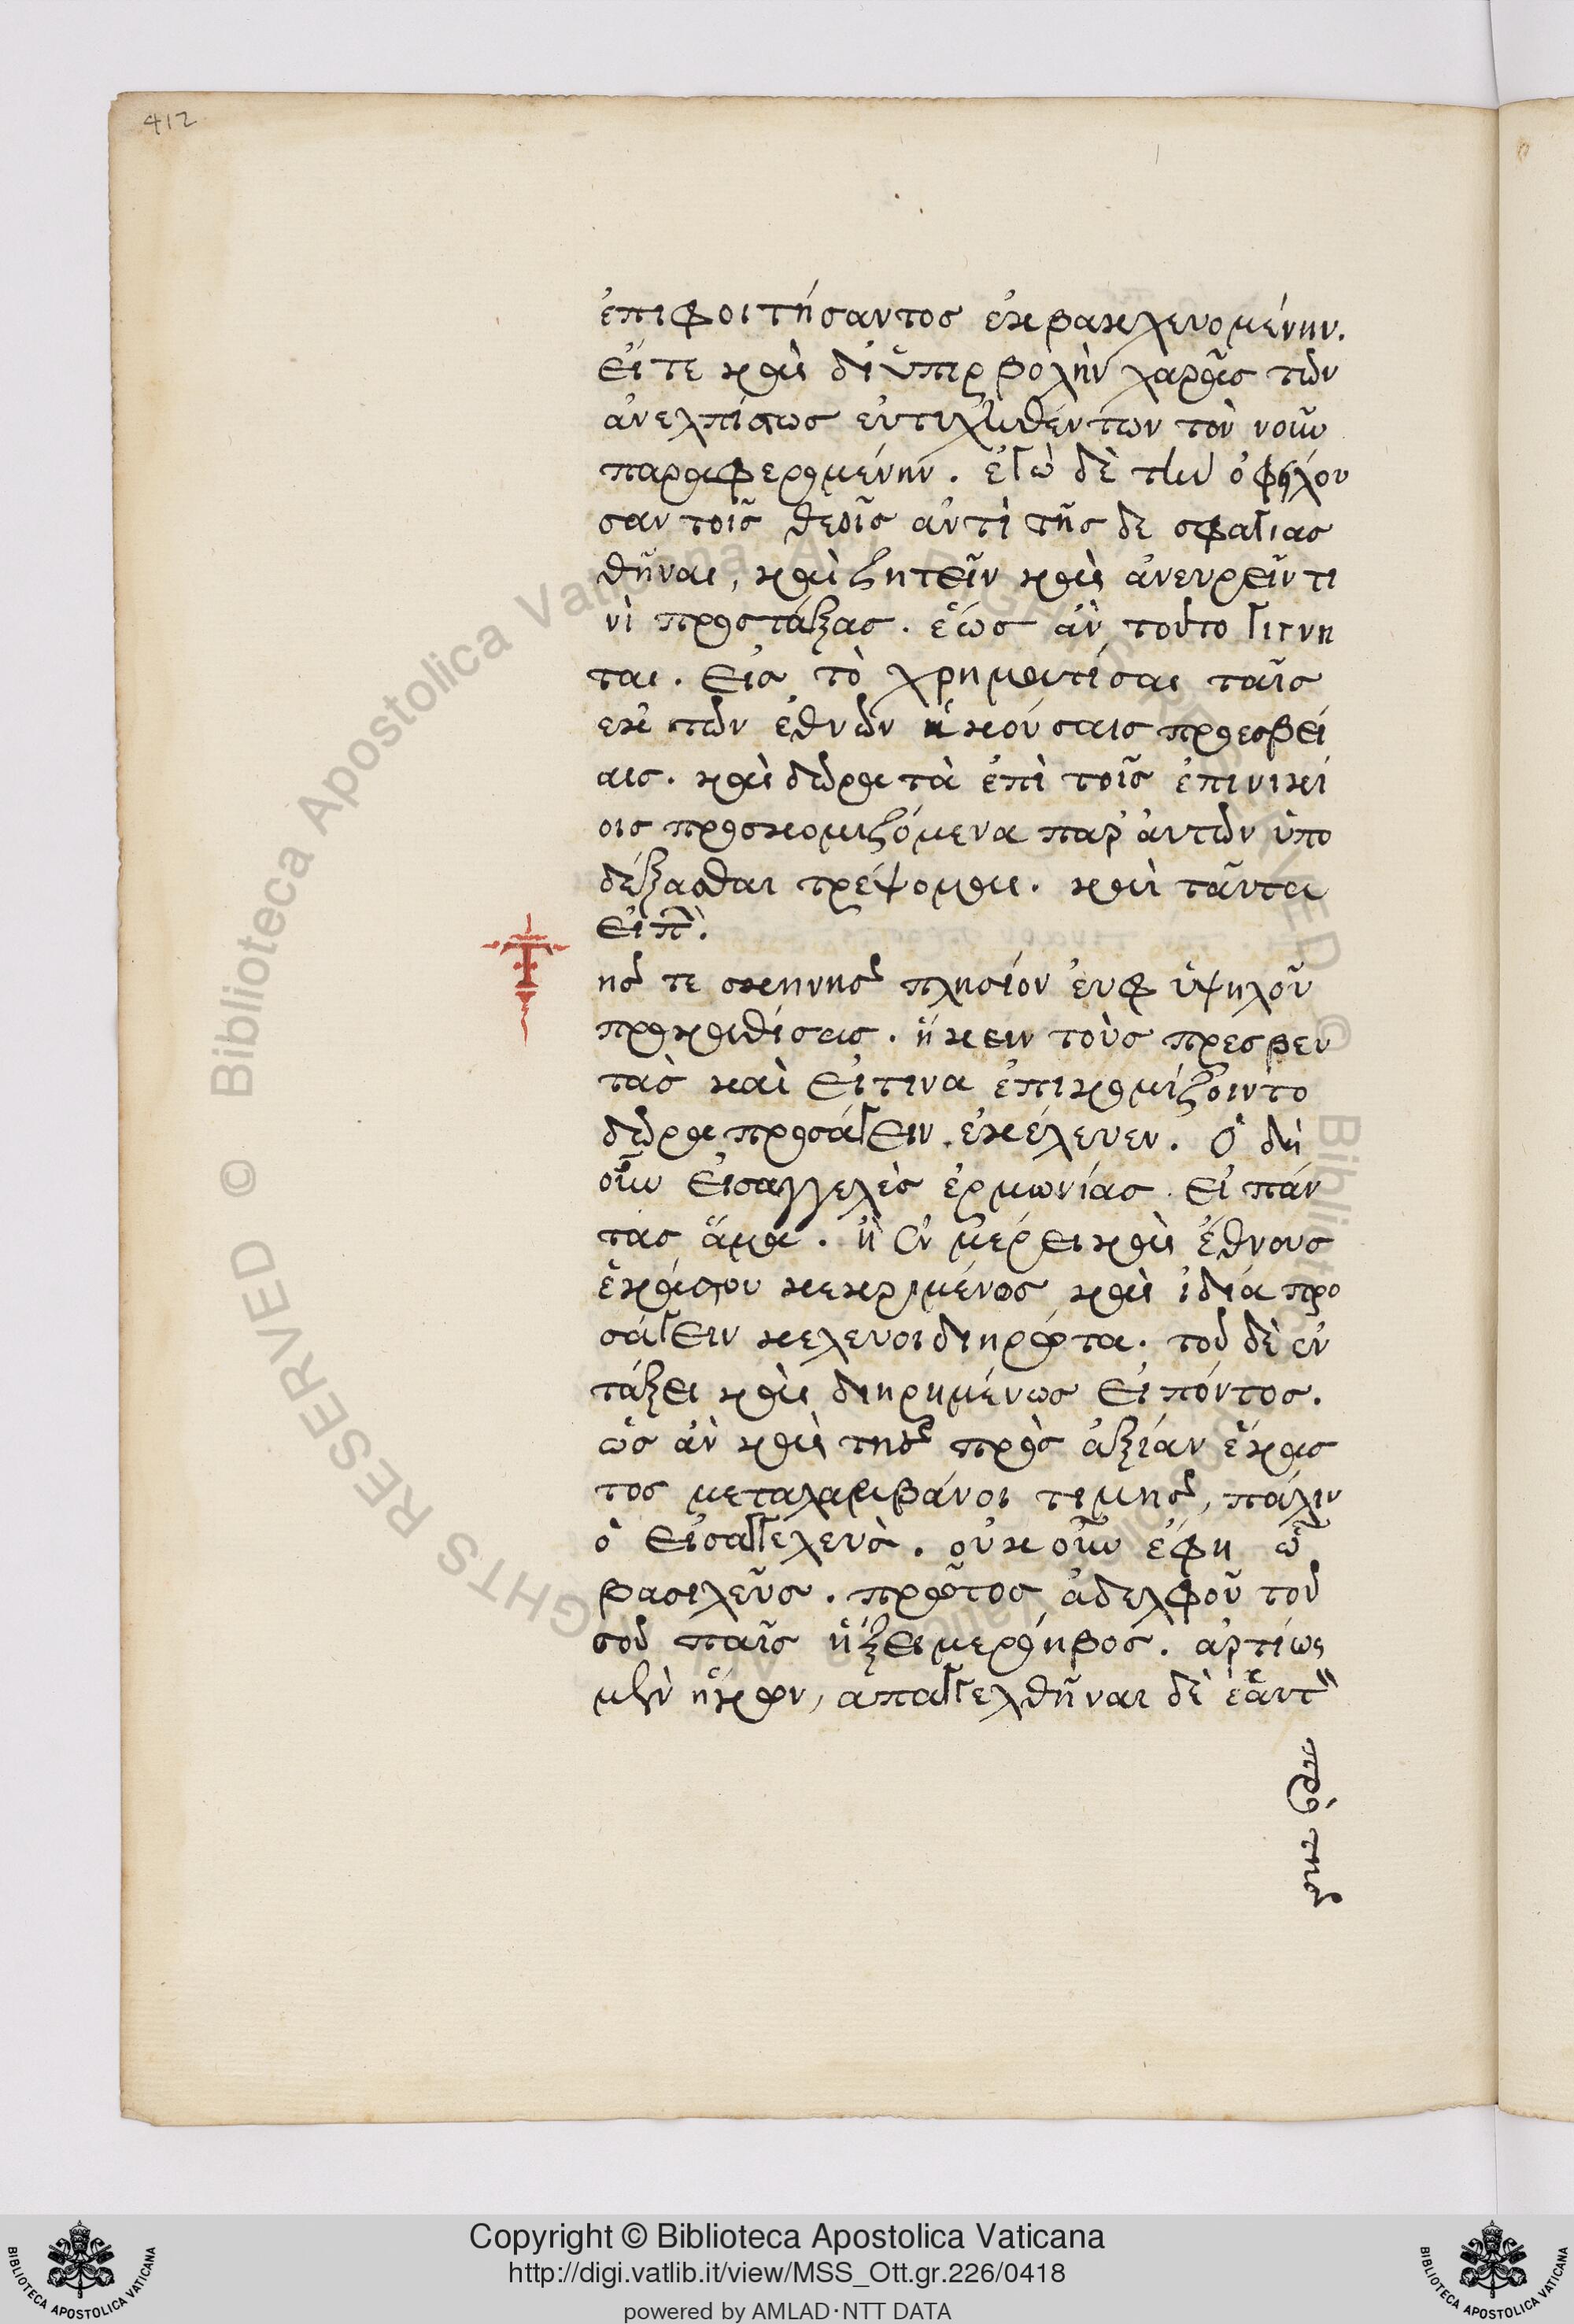 412
ἐπιφοιτήσαντος ἐκβακχευομένην.
εἴτε καὶ δι ὑπερβολὴν χαρᾶς τῶν
ἀνελπίστως εὐτυχηθέντων τὸν νοῦν
παραφερομένην. ἐγὼ δὲ τὴν ὀφείλου
σαν τοῖς θεοῖς ἀντὶ τῆς δε σφαγιας
θῆναι, καὶ ζητεῖν καὶ ἀνευρεῖν τι
νὶ προστάξας. ἕως ἂν τοῦτο γιγνη
ται. εἰς τὸ χρηματίσαι ταῖς
εκ τῶν ἐθνῶν ἡκούσαις πρεσβεί
αις. καὶ δῶρα τὰ ἐπὶ τοῖς ἐπινικί
οις προσκομιζόμενα παρ' ἀυτῶν ὑπο
δέξασθαι τρέψομαι. καὶ ταῦτα
εἰπὼν.
Τ
ῆς τε σκηνῆς πλησίον ἐυφ ὑψηλοῦ
προκαθίσας. ἥκειν τοὺς πρεσβευ
τὰς καὶ εἴ τινα ἐπικομίζοιντο
δῶρα προσάγειν ἐκέλευεν. ὁ δὴ
οὖν εἰσαγγελὲς ἑρμωνίας. εἰ πάν
τας ἅμα. ἢ ἐν μέρει καὶ ἔθνους
ἑκάστου κεκριμένος καὶ ἰδία προ
σάγειν κελευοι διηρώτα. τοῦ δὲ ἐν
τάξει καὶ διηρημένως εἰπόντος.
ὡς ἂν καὶ τῆς πρὸς ἀξίαν ἕκας
τος μεταλαμβάνοι τιμῆς, πάλιν
ὁ εἰσαγγελεὺς. οὐκ οὖν ἔφη ὦ
βασιλεῦς. πρῶτος ἀδελφοῦ τοῦ
σοῦ παῖς ἥξει μερόηβος. ἀρτίως
μὲν ἥκων, ἀπαγγελθῆναι δὲ ἑαυτ
περὶ τῆς
Copyright © Biblioteca Apostolica Vaticana
http://digi.vatlib.it/view/MSS_Ott.gr.226/0418
powered by AMLAD·NTT DATA